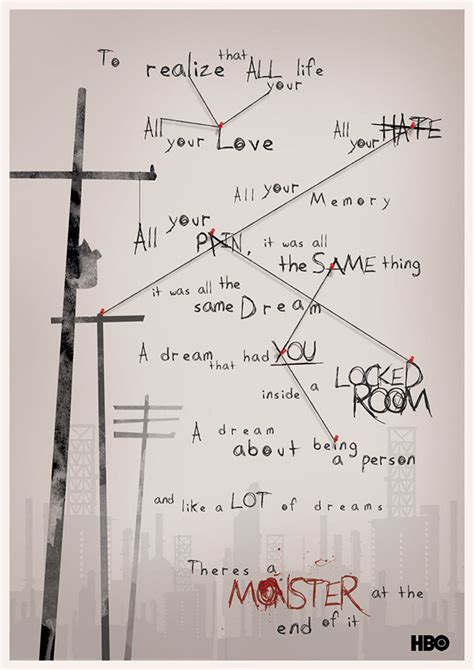 To realize that ALL life
your
All your Love
All your HATE
All your Memory
All your PAIN, it was all
the SAME thing
it was all the
same Dream
A dream that had YOU
inside a LOCKED ROOM
A dream
about being
a person
and like a LOT of dreams
Theres a
MONSTER at the
end of it
HBO